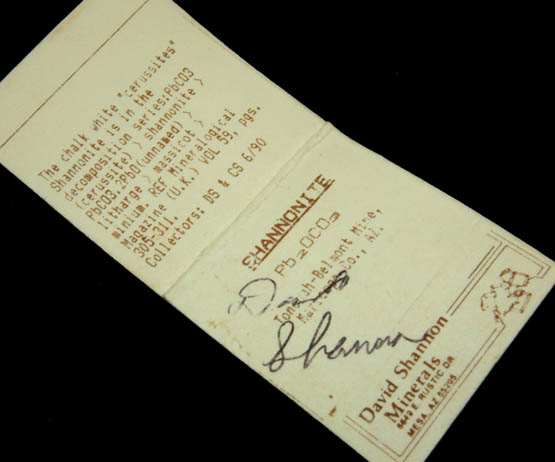 The chalk white "cerussites"
Shannonite is in the
decomposition series:PbCO3
(cerussite) > shannonite >
PbCO3.2PbO(unnamed) >
litharge > massicot >
minium. REF. Mineralogical
Magazine (U.K.) VOL 59, pgs.
305-311.
Collectors: DS & CS 6/90
SHANNONITE
Pb2OCO3
Tonopah-Belmont Mine,
Maricopa Co., AZ.
David
Shannon
David Shannon
Minerals
6649 E. RUSTIC DR
MESA, AZ 85205